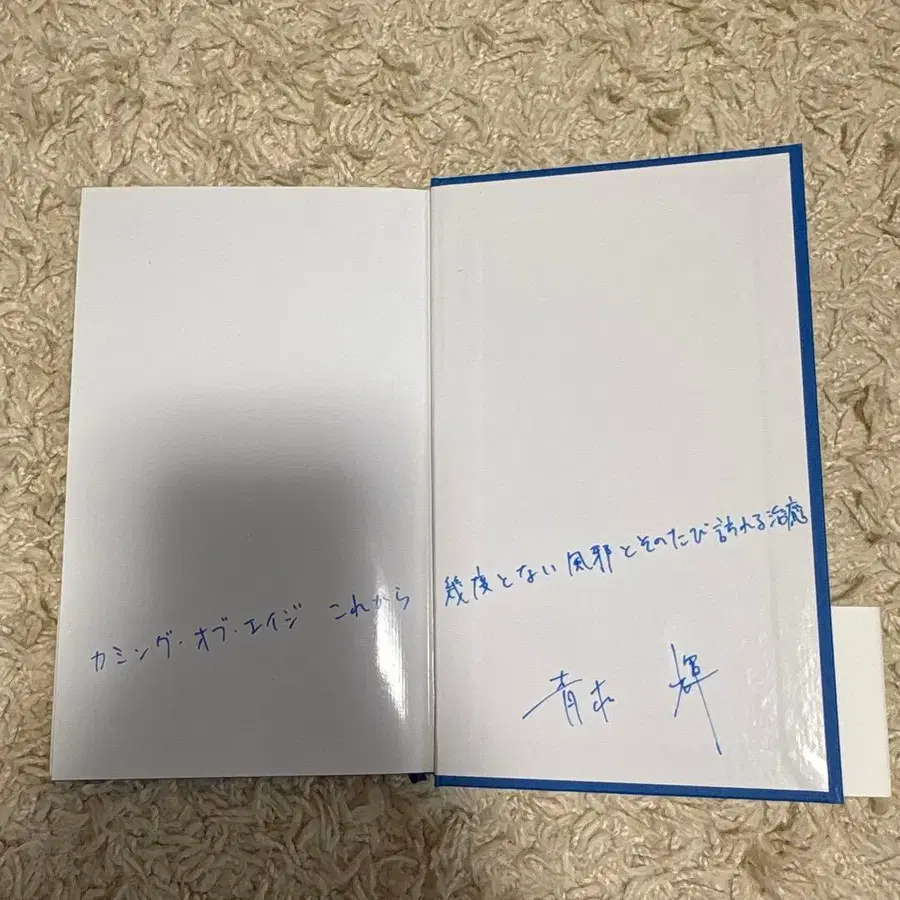 カミング・オブ・エイジ これから 幾度とない風邪とそのたび訪れる治癒
青木 輝